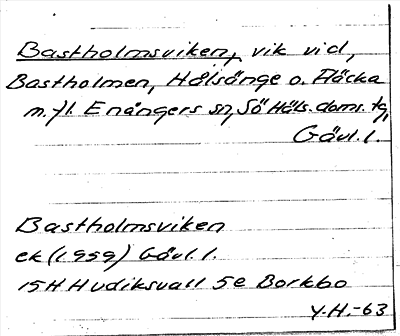 Bastholmsviken, vik vid,
Bastholmen, Hålsänge o. Fläcka
m.fl. Enångers sn, Sö Häls. doms. tg,
Gävl. l.
Bastholmsviken
ek (1959) Gävl. l.
15H Hudiksvall 5e Borkbo
Y.H.-63